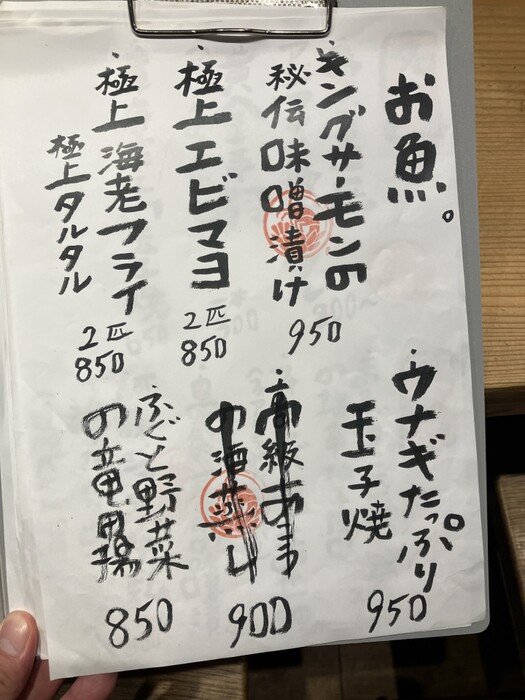 お魚。
・キングサーモンの
秘伝味噌漬け
950
・極上エビマヨ
2匹
850
・極上海老フライ
極上タルタル
2匹
850
・ウナギたっぷり
玉子焼
950
・高級あま
の海藻
900
ふぐと野菜
の竜田揚
850